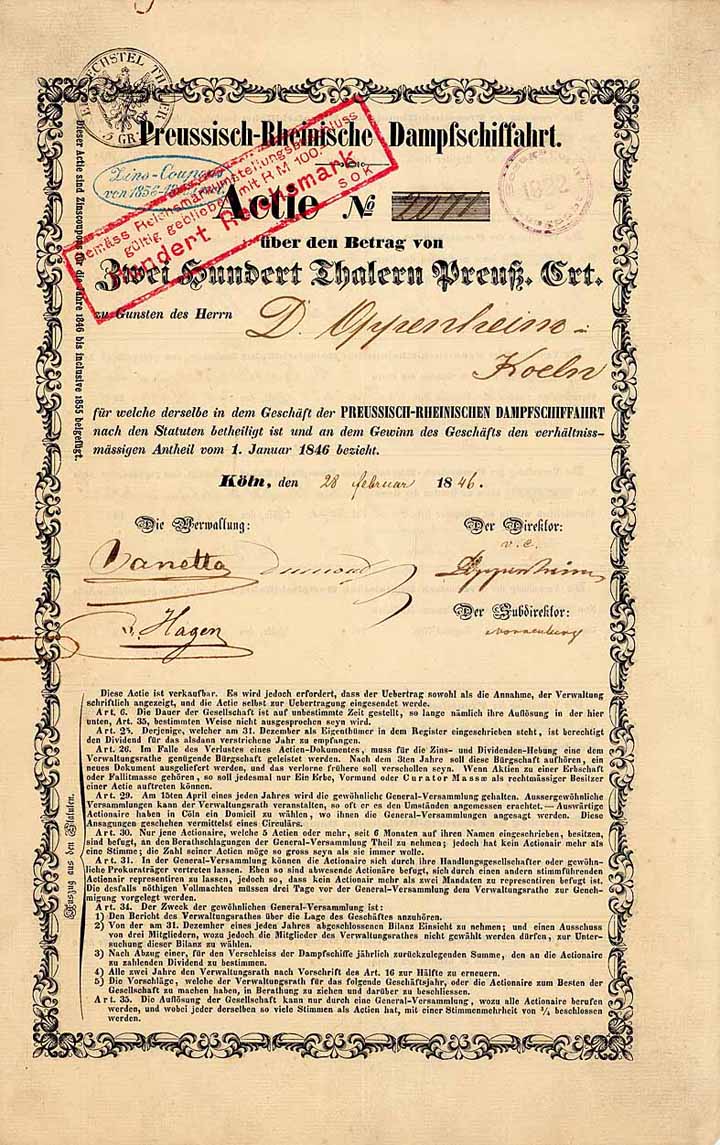 Preussisch-Rheinische Dampfschiffahrt.
Zins-Coupons
gemäss Reichsmarkumstellungsbeschluss
gültig geblieben mit RM 100.-
Hundert Reichsmark
SOK
Actie №
über den Betrag von
Zwei Hundert Thalern Preuß. Crt.
zu Gunsten des Herrn D. Oppenheim
Koeln
für welche derselbe in dem Geschäft der PREUSSISCH-RHEINISCHEN DAMPFSCHIFFAHRT
nach den Statuten betheiligt ist und an dem Gewinn des Geschäfts den verhältniss-
mässigen Antheil vom 1. Januar 1846 bezieht.
Köln, den 28 februar 1846.
Die Verwaltung: Der Direktor:
Oppenheim
v. Hagen
Der Subdirektor:
Dieser Actie sind Zinscoupons für die Jahre 1846 bis inclusive 1855 beigefügt.
Auszug aus den Statuten.
Diese Actie ist verkaufbar. Es wird jedoch erfordert, dass der Uebertrag sowohl als die Annahme, der Verwaltung
schriftlich angezeigt, und die Actie selbst zur Uebertragung eingesendet werde.
Art. 6. Die Dauer der Gesellschaft ist auf unbestimmte Zeit gestellt, so lange nämlich ihre Auflösung in der hier
unten, Art. 35, bestimmten Weise nicht ausgesprochen seyn wird.
Art. 25. Derjenige, welcher am 31. Dezember als Eigenthümer in dem Register eingeschrieben steht, ist berechtigt
den Dividend für das alsdann verstrichene Jahr zu empfangen.
Art. 26. Im Falle des Verlustes eines Actien-Dokumentes, muss für die Zins- und Dividenden-Hebung eine dem
Verwaltungsrathe genügende Bürgschaft geleistet werden. Nach dem 3ten Jahre soll diese Bürgschaft aufhören, ein
neues Dokument ausgeliefert werden, und das verlorene frühere soll verschollen seyn. Wenn Aktien zu einer Erbschaft
oder Fallitmasse gehören, so soll jedesmal nur Ein Erbe, Vormund oder Curator Massæ als rechtmässiger Besitzer
einer Actie auftreten können.
Art. 29. Am 15ten April eines jeden Jahres wird die gewöhnliche General-Versammlung gehalten. Aussergewöhnliche
Versammlungen kann der Verwaltungsrath veranstalten, so oft er es den Umständen angemessen erachtet. — Auswärtige
Actionaire haben in Cöln ein Domicil zu wählen, wo ihnen die General-Versammlungen angesagt werden. Diese
Ansagungen geschehen vermittelst eines Circulärs.
Art. 30. Nur jene Actionaire, welche 5 Actien oder mehr, seit 6 Monaten auf ihren Namen eingeschrieben, besitzen,
sind befugt, an den Berathschlagungen der General-Versammlung Theil zu nehmen; jedoch hat kein Actionair mehr als
eine Stimme; die Zahl seiner Actien möge so gross seyn als sie immer wolle.
Art. 31. In der General-Versammlung können die Actionaire sich durch ihre Handlungsgesellschafter oder gewöhn-
liche Prokuraträger vertreten lassen. Eben so sind abwesende Actionäre befugt, sich durch einen andern stimmführenden
Actionair representiren zu lassen, jedoch so, dass kein Actionair mehr als zwei Mandaten zu representiren befugt ist.
Die desfalls nöthigen Vollmachten müssen drei Tage vor der General-Versammlung dem Verwaltungsrathe zur Geneh-
migung vorgelegt werden.
Art. 34. Der Zweck der gewöhnlichen General-Versammlung ist:
1) Den Bericht des Verwaltungsrathes über die Lage des Geschäftes anzuhören.
2) Von der am 31. Dezember eines jeden Jahres abgeschlossenen Bilanz Einsicht zu nehmen; und einen Ausschuss
von drei Mitgliedern, wozu jedoch die Mitglieder des Verwaltungsrathes nicht gewählt werden dürfen, zur Unter-
suchung dieser Bilanz zu wählen.
3) Nach Abzug einer, für den Verschleiss der Dampfschiffe jährlich zurückzulegenden Summe, den an die Actionaire
zu zahlenden Dividend zu bestimmen.
4) Alle zwei Jahre den Verwaltungsrath nach Vorschrift des Art. 16 zur Hälfte zu erneuern.
5) Die Vorschläge, welche der Verwaltungsrath für das folgende Geschäftsjahr, oder die Actionaire zum Besten der
Gesellschaft zu machen haben, in Berathung zu ziehen und darüber zu beschliessen.
Art. 35. Die Auflösung der Gesellschaft kann nur durch eine General-Versammlung, wozu alle Actionaire berufen
werden, und wobei jeder derselben so viele Stimmen als Actien hat, mit einer Stimmenmehrheit von ¾ beschlossen
werden.